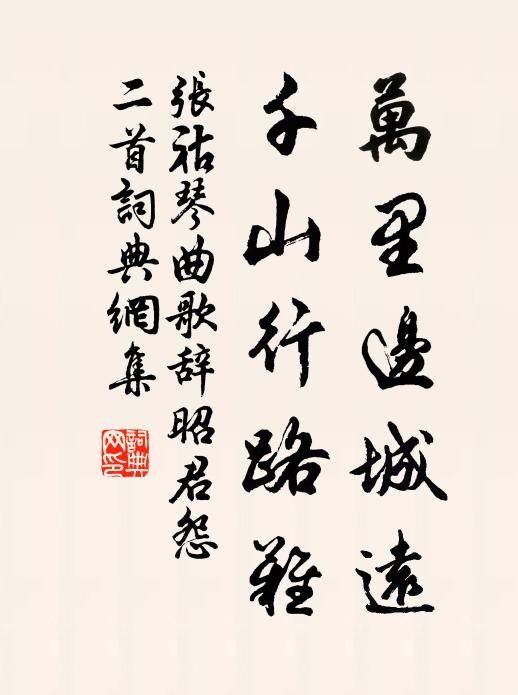 萬里邊城遠
千山行路難
張祜琴曲歌辞昭君怨
二首詞典網集
詞典
网印